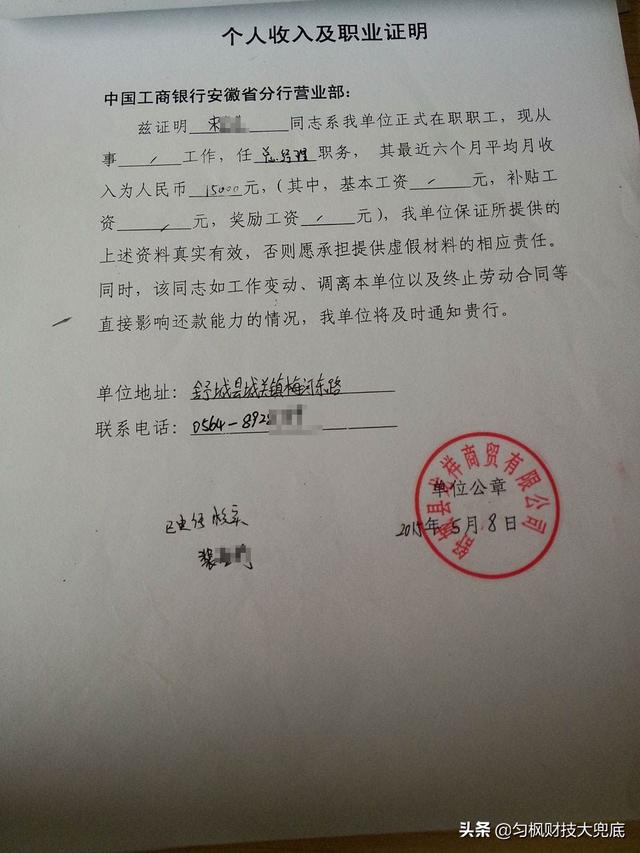 个人收入及职业证明
中国工商银行安徽省分行营业部：
兹证明 宋 同志系我单位正式在职职工，现从
事 / 工作，任 总经理 职务，其最近六个月平均月收
入为人民币 15000 元，（其中，基本工资 / 元，补贴工
资 / 元，奖励工资 / 元），我单位保证所提供的
上述资料真实有效，否则愿承担提供虚假材料的相应责任。
同时，该同志如工作变动、调离本单位以及终止劳动合同等
直接影响还款能力的情况，我单位将及时通知贵行。
单位地址：舒城县城关镇梅河东路
联系电话：0564-8928
单位公章
2015年5月8日
县 祥商贸有限公司
已电话核实
裴
头条 @匀枫财技大兜底